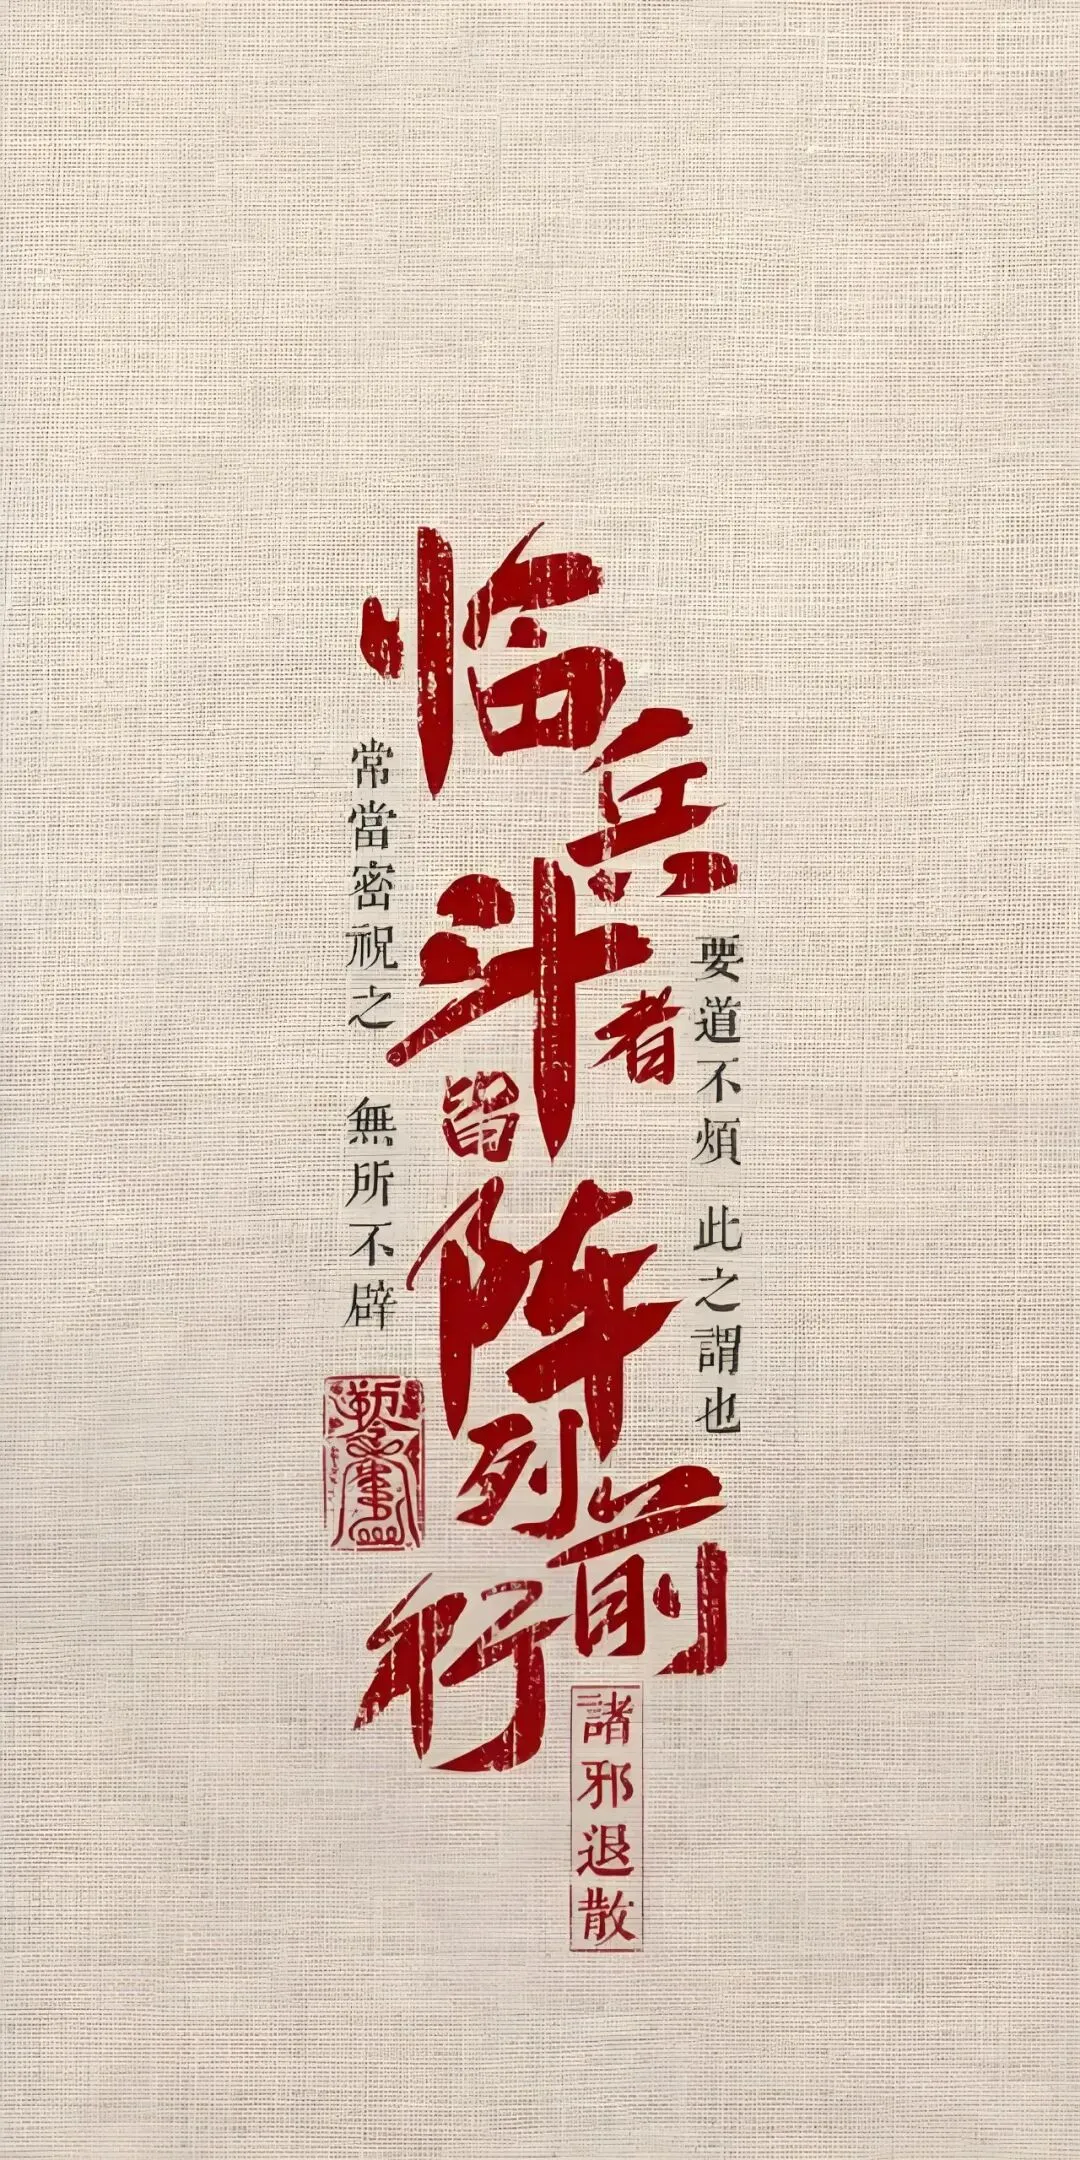 临兵斗者皆阵列前行
要道不煩 此之謂也
常當密祝之 無所不辟
諸邪退散